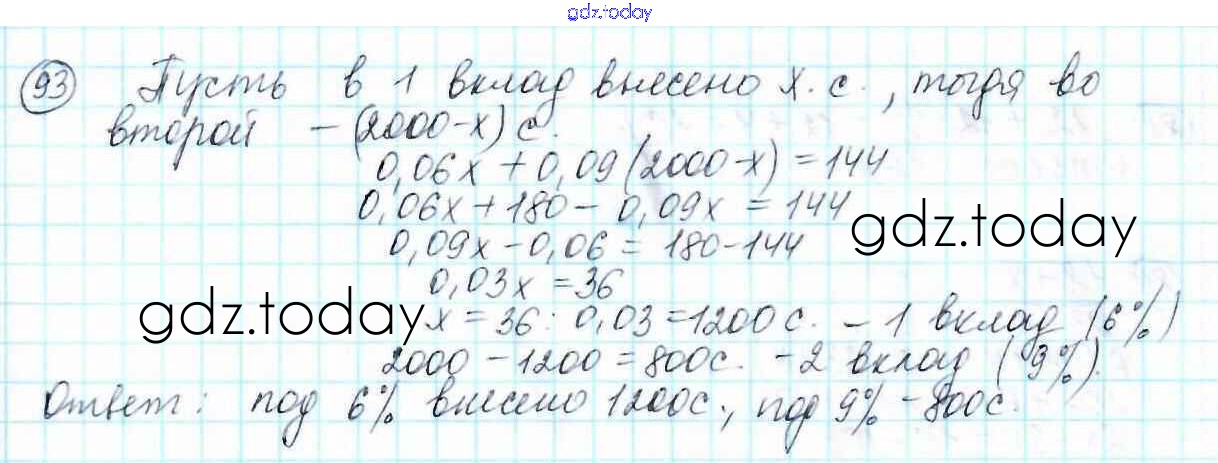 gdz.today
93 Пусть в 1 вклад внесено x. с., тогда во
второй – (2000-x) с.
0,06x + 0,09(2000-x) = 144
0,06x + 180 - 0,09x = 144
0,09x - 0,06 = 180-144
gdz.today
0,03x = 36
gdz.today
x = 36 : 0,03 = 1200 с. – 1 вклад (6%)
2000 - 1200 = 800 с. - 2 вклад (9%).
Ответ: под 6% внесено 1200с., под 9% - 800с.